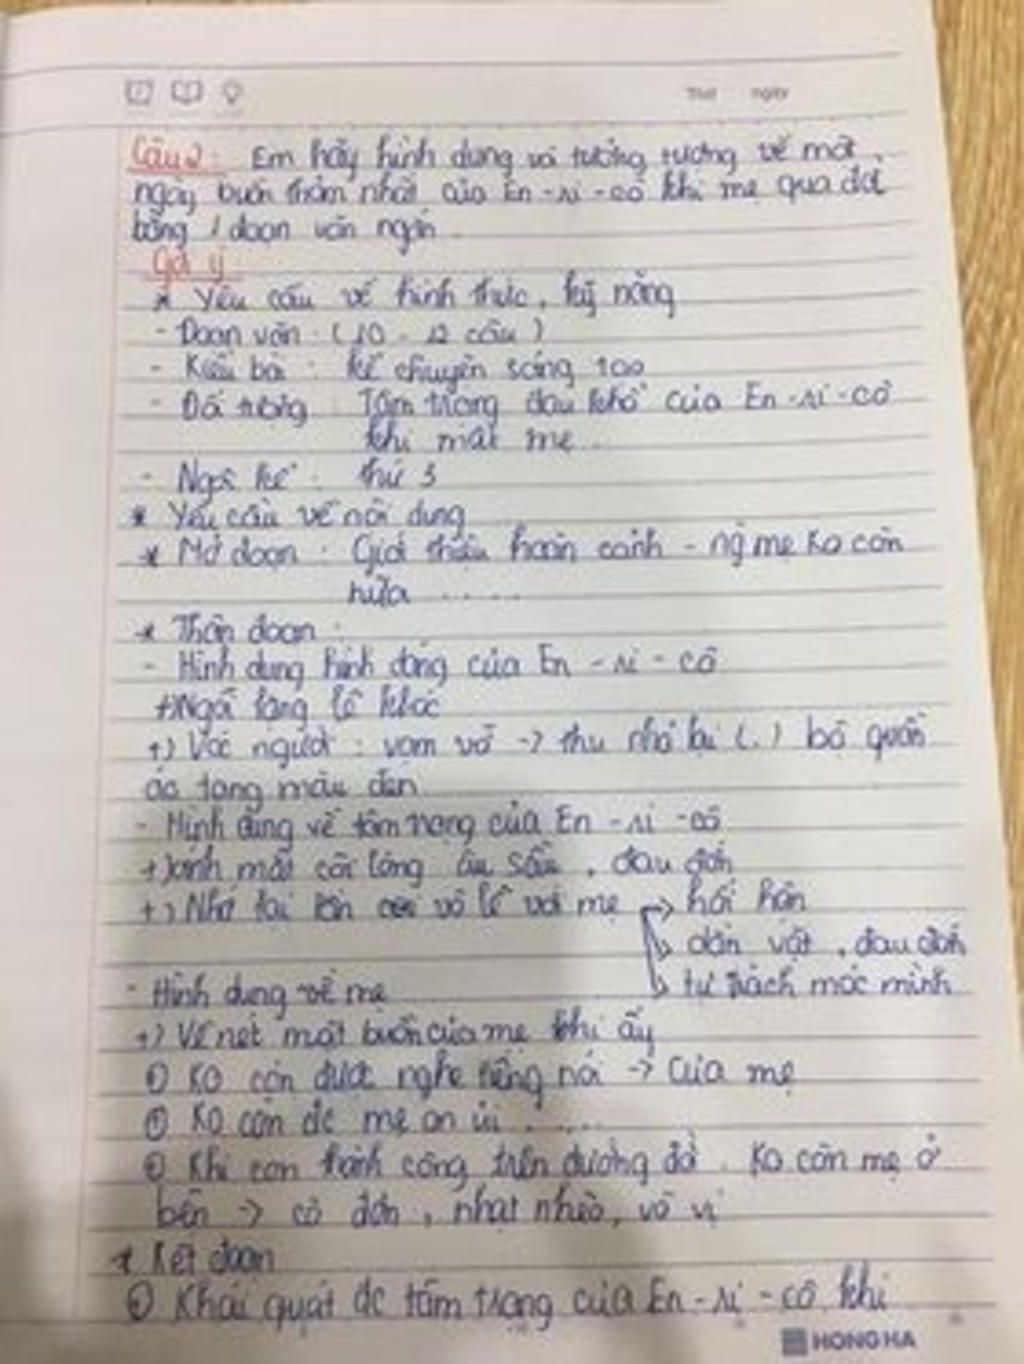 Thứ ngày
Câu 2: Em hãy hình dung và tưởng tượng về một
ngày buồn thảm nhất của En-ri-cô khi mẹ qua đời
bằng 1 đoạn văn ngắn.
Gợi ý
* Yêu cầu về hình thức, kỹ năng
- Đoạn văn: (10 - 12 câu)
- Kiểu bài: kể chuyện sáng tạo
- Đối tượng Tâm trạng đau khổ của En-ri-cô
khi mất mẹ.
- Ngôi kể: thứ 3
* Yêu cầu về nội dung
* Mở đoạn: Giới thiệu hoàn cảnh - ng mẹ ko còn
nữa .....
* Thân đoạn:
- Hình dung hình dáng của En-ri-cô
+) Ngồi lặng lẽ khóc
+) Vóc người: vạm vỡ -> thu nhỏ lại (.) bộ quần
áo tang màu đen
- Hình dung về tâm trạng của En-ri-cô
+) ánh mắt cõi lòng âu sầu, đau đớn
+) Nhớ lại lần vô lễ với mẹ -> hối hận
dằn vặt, đau đớn
tự trách móc mình
- Hình dung về mẹ
+) Về nét mặt buồn của mẹ khi ấy
+ Ko còn được nghe tiếng nói -> của mẹ
+ Ko còn đc mẹ an ủi .....
+ Khi con thành công trên đường đời. Ko còn mẹ ở
bên -> cô đơn, nhạt nhẽo, vô vị
* Kết đoạn
+ Khái quát đc tâm trạng của En-ri-cô khi
HONG HA